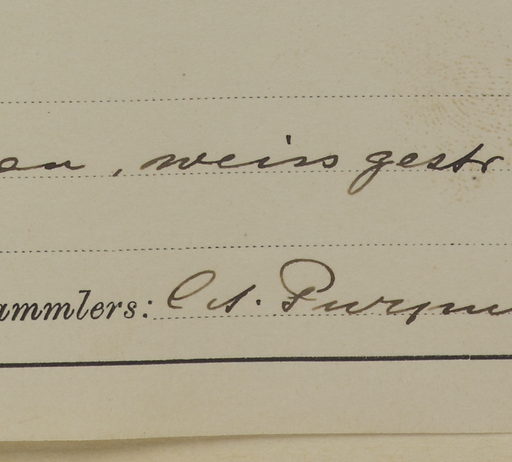 au, weiss gestr
ammlers: C. A. Purpus